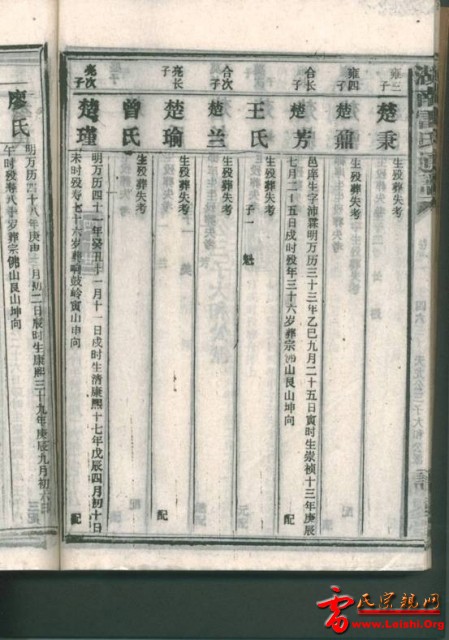 雍三子
楚秉
生殁葬失考
雍四子
楚鼐
生殁葬失考
合长子
楚芳
邑庠生字沛霖明万历三十三年乙巳九月二十五日寅时生崇祯十三年庚辰
七月二十五日戌时殁年三十六岁葬宗佛山艮山坤向
配
王氏
生殁葬失考
子一
魁
合次子
楚兰
生殁葬失考
亮长子
楚瑜
生殁葬失考
配
曾氏
生殁葬失考
亮次子
楚瑾
明万历四十一年癸丑十一月十一日戌时生清康熙十七年戊辰四月初十日
未时殁寿七十六岁葬响鼓岭寅山申向
配
廖氏
明万历四十八年庚申二月初二日辰时生康熙三十九年庚辰九月初六日
午时殁寿八十岁葬宗佛山艮山坤向
雷氏宗亲网
www.Leishi.Org